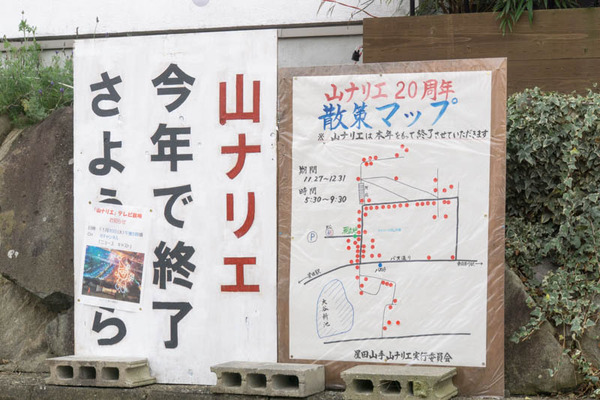 山ナリエ
今年で終了
さようなら
「山ナリエ」テレビ放映
山ナリエ 20周年
散策マップ
※.山ナリエは本年をもって終了させていただきます
期間
11.27〜12.31
時間
5:30〜9:30
P
バス通り
大谷新池
星田山手 山ナリエ実行委員会